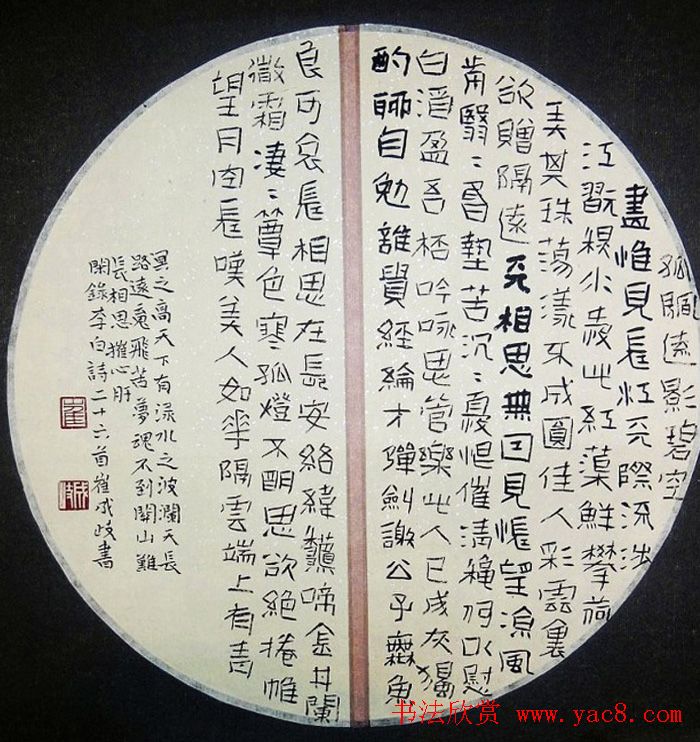 孤颿遠影碧空
盡惟見長江天際流涉
江翫秋水愛此紅蕖鮮攀荷
弄其珠蕩漾不成圓佳人彩雲裏
欲贈隔遠天相思無因見悵望涼風
前翳〻昏墊苦沉〻憂恨催清秋何以慰
白酒盈吾杯吟咏思管樂此人已成灰獨
酌聊自勉誰貴經綸才彈劍謝公子無魚
良可哀長相思在長安絡緯秋啼金井闌
微霜淒〻簟色寒孤燈不明思欲絕捲帷
望月空長嘆美人如花隔雲端上有青
冥之高天下有淥水之波瀾天長
路遠魂飛苦夢魂不到關山難
長相思摧心肝
閑錄李白詩二十六首崔成歧書
崔
书法欣赏 www.yac8.com